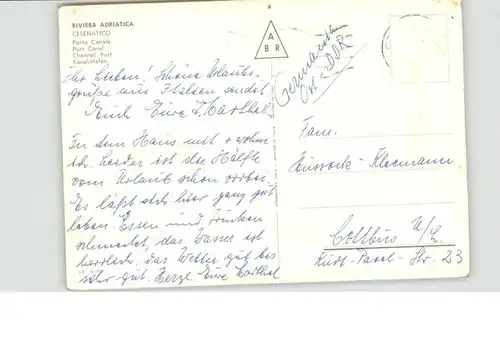 RIVIERA ADRIATICA
CESENATICO
Porto Canale
Port Canal
Channel Port
Kanal-Hafen
A
B R
Ost - DDR -
Ihr Lieben! Schöne Urlaubs-
grüße aus Italien sendet
Euch Eure
In dem Haus mit + wohne
ich. Leider ist die Hälfte
vom Urlaub schon vorbei.
Es läßt sich hier ganz gut
leben. Essen und Trinken
schmeckt, das Wasser ist
herrlich, das Wetter gut bis
sehr gut. Herzl. Eure
Fam.
Kleemann
Cottbus N/L.
Str. 23